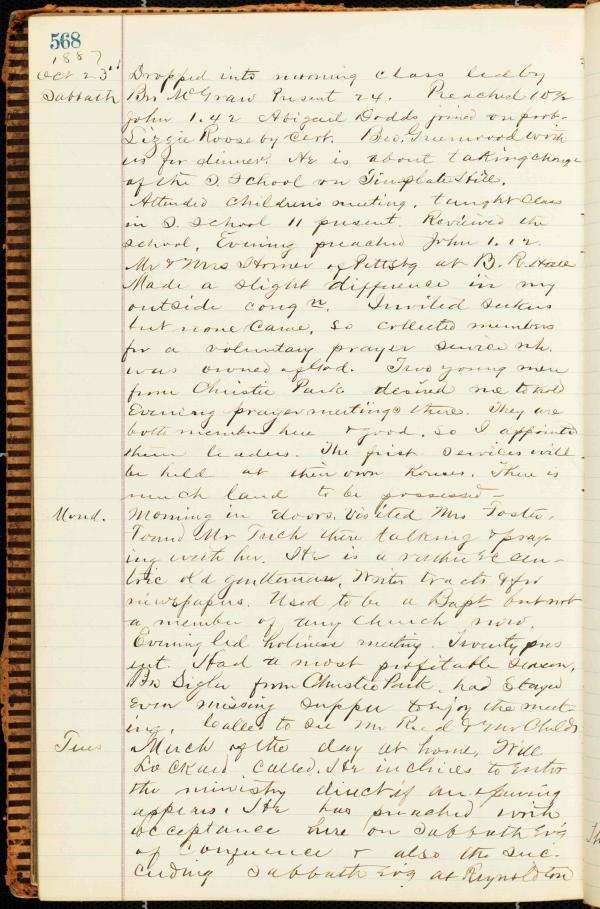 568
1887
Oct 23rd Dropped into morning class led by
Sabbath Bro McGraw Present 24. Preached 10 1/2
John 1.42 Abigail Dodds joined on prob.
Lizzie Roose by Cert. Bro. Greenwood with
us for dinner. He is about taking charge
of the S. School on Tinplate Hill.
Attended children's meeting, taught class
in S. School 11 present. Reviewed the
School. Evening preached John 1.12.
Mr & Mrs Horner of Pittsbg at B. R. Hall
Made a slight difference in my
outside congn. Invited seekers
but none came, so collected members
for a voluntary prayer service wh.
was owned of God. Two young men
from Christie Park desired me to hold
Evening prayermeetings there. They are
both members here & good, so I appointed
them leaders. The first services will
be held at their own houses. There is
much land to be possessed -
Mond. Morning in doors. Visited Mrs Foster.
Found Mr Trich there talking & pray-
ing with her. He is a rather eccen-
tric old gentleman, writes tracts & for
newspapers. Used to be a Bapt but not
a member of any church now.
Evening led holiness meeting. Twenty pres
ent. Had a most profitable season.
Bro Sigler from Christie Park had stayed
even missing supper to enjoy the meet-
ing. Called to see Mr Reed & Mr Childs
Tues Much of the day at home, Will
Lockard called. He inclines to enter
the ministry direct if an opening
appears. He has preached with
acceptance here on Sabbath Evg
of Conference & also the suc-
ceeding Sabbath Evg at Reynoldton